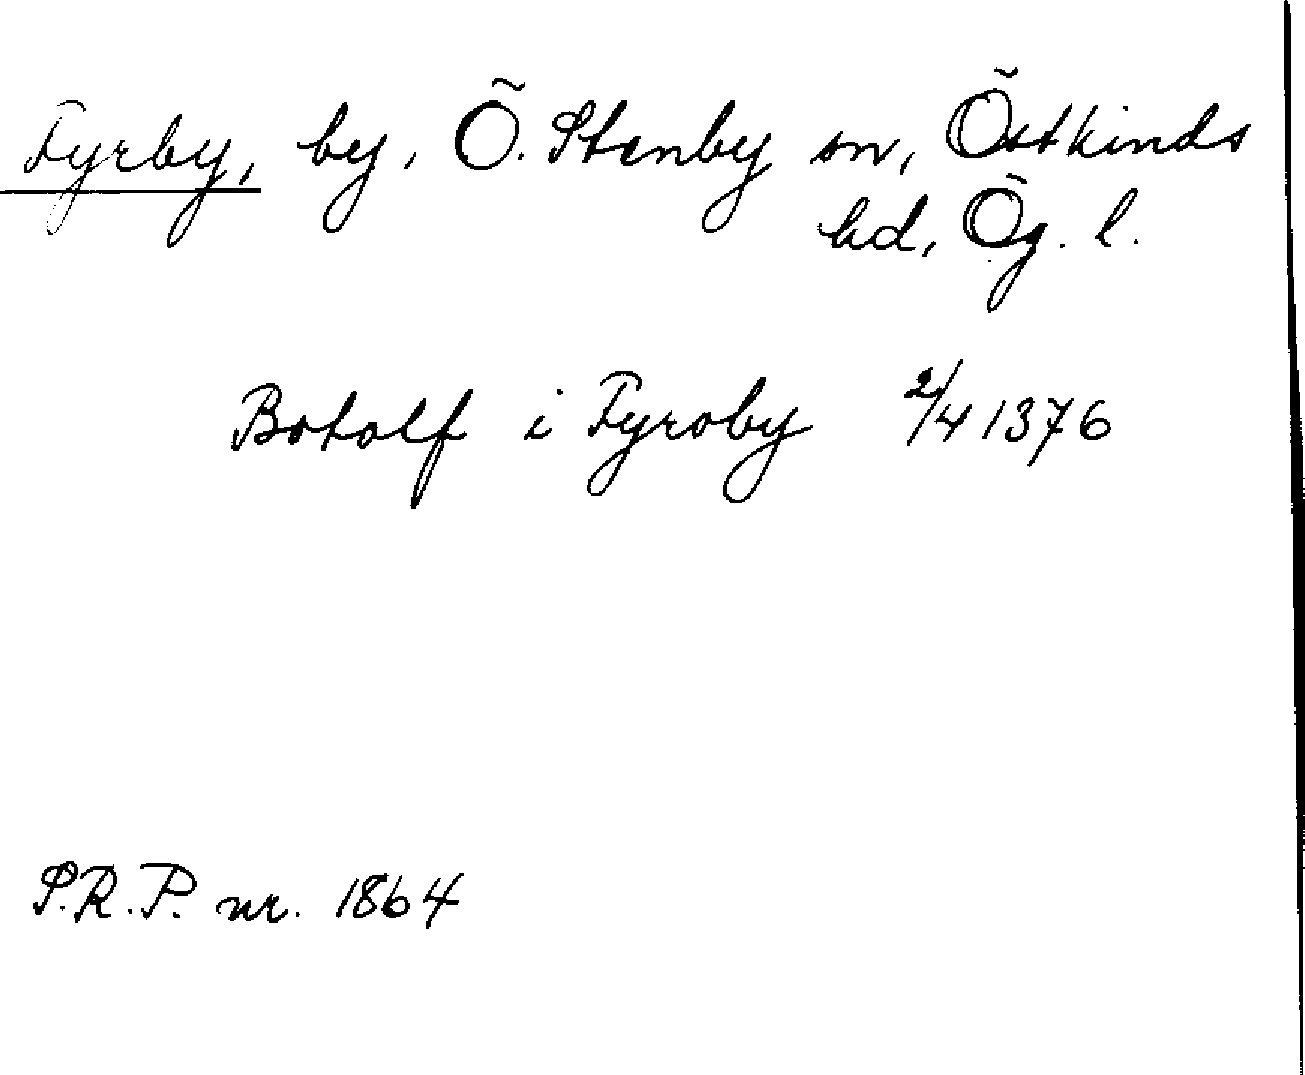 Fyrby, by, Ö. Stenby sn, Östkinds
hd, Ög. l.
Botolf i Fyroby 2/4 1376
S.R.P. nr. 1864